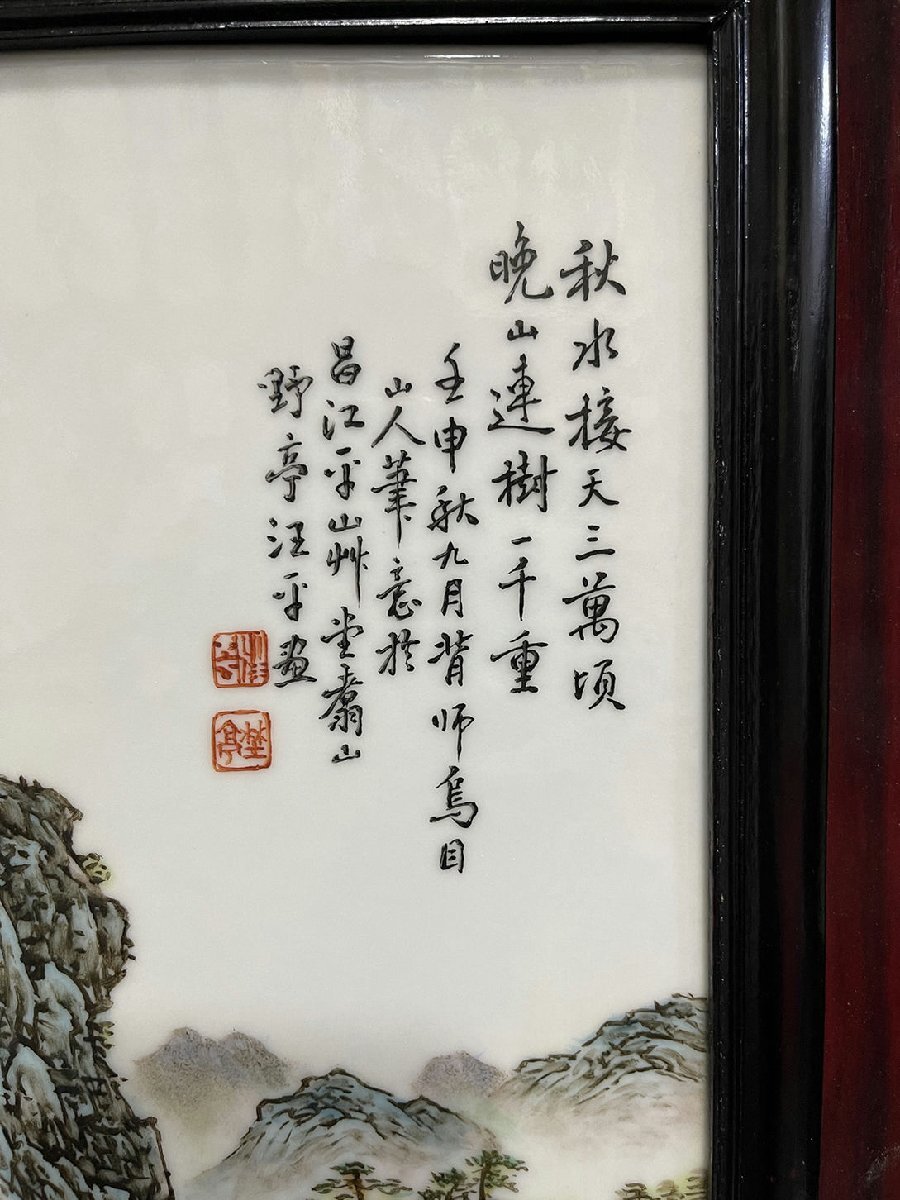 秋水接天三萬頃
晚山連樹一千重
壬申秋九月背师烏目
山人筆意於
昌江平山艸堂山
野亭汪平畫
埜亭